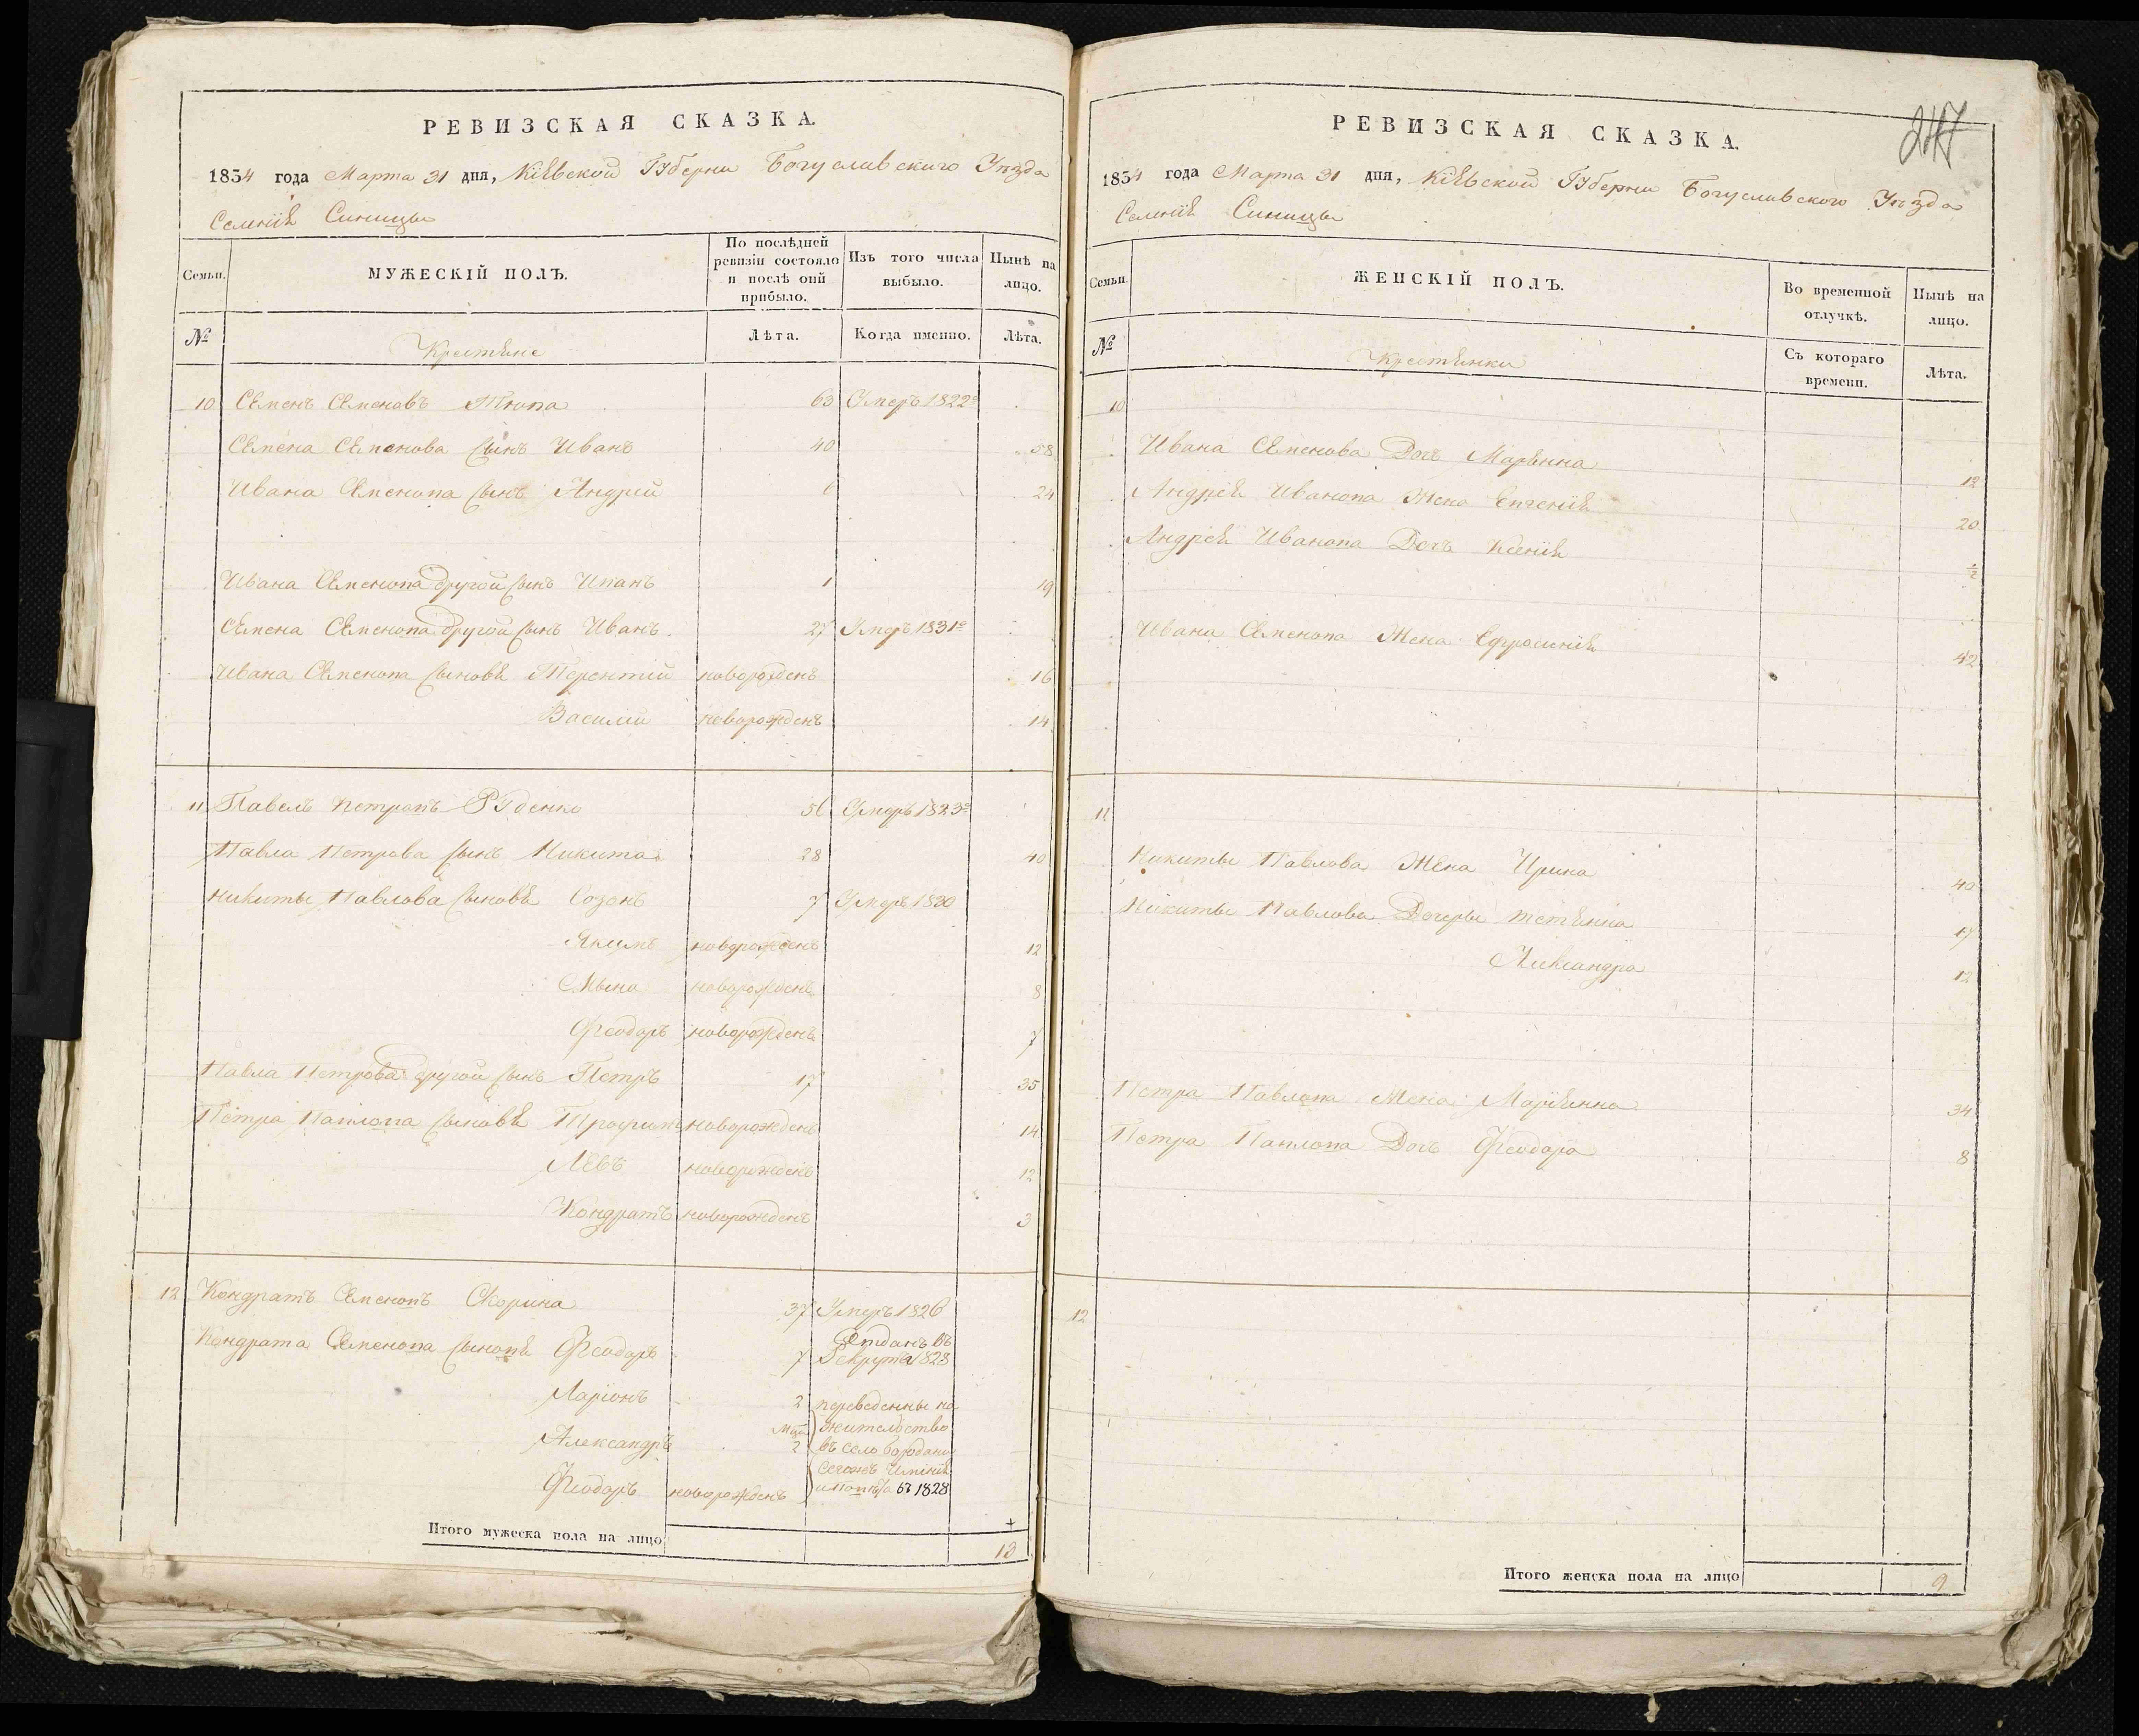 РЕВИЗСКАЯ СКАЗКА.
1834 года Марта 31 дня, Кіевской Губерни Богуславского Уѣзда
Селенія Синицы
Семьи. МУЖЕСКІЙ ПОЛЪ. По послѣдней ревизіи состояло и послѣ оной прибыло. Изъ того числа выбыло. Нынѣ на лицо.
№ Крестьяне Лѣта. Когда именно. Лѣта.
10 Семенъ Семеновъ Тюпа 63 Умеръ 1822
Семена Семенова сынъ Иванъ 40 58
Ивана Семенова сынъ Андрей 6 24
Ивана Семенова другой сынъ Иванъ 1 19
Семена Семенова другой сынъ Иванъ 27 Умеръ 1831
Ивана Семенова сыновя Терентій новорожденъ 16
Василій новорожденъ 14
11 Павелъ Петровъ Руденко 56 Умеръ 1823
Павла Петрова сынъ Никита 28 40
Никиты Павлова сыновя Созонъ 7 Умеръ 1830
Якимъ новорожденъ 12
новорожденъ 8
Феодоръ новорожденъ 7
Павла Петрова другой сынъ Петръ 17 35
Петра Павлова сыновя Трофимъ новорожденъ 14
Левъ новорожденъ 12
Кондратъ новорожденъ 3
12 Кондратъ Семеновъ Скорина 37 Умеръ 1826
Кондрата Семенова сыновя Феодоръ 7 Отданъ въ Рекруты 1828
Ларіонъ 2 переведенны на
Александръ 2 жительство въ село
Феодоръ новорожденъ въ 1828
Итого мужеска пола на лицо 13
РЕВИЗСКАЯ СКАЗКА.
247
1834 года Марта 31 дня, Кіевской Губерни Богуславского Уѣзда
Селенія Синицы
Семьи. ЖЕНСКІЙ ПОЛЪ. Во временной отлучкѣ. Нынѣ на лицо.
№ Крестянки Съ котораго времени. Лѣта.
10
Ивана Семенова Дочь Марянна 12
Андрея Иванова Жена Евгенія 20
Андрея Иванова Дочь Ксенія ½
Ивана Семенова Жена Ефросинія 42
11
Никиты Павлова Жена Ирина 40
Никиты Павлова Дочеры Тетянна 17
Александра 12
Петра Павлова Жена Маріянна 34
Петра Павлова Дочь Феодора 8
12
Итого женска пола на лицо 9